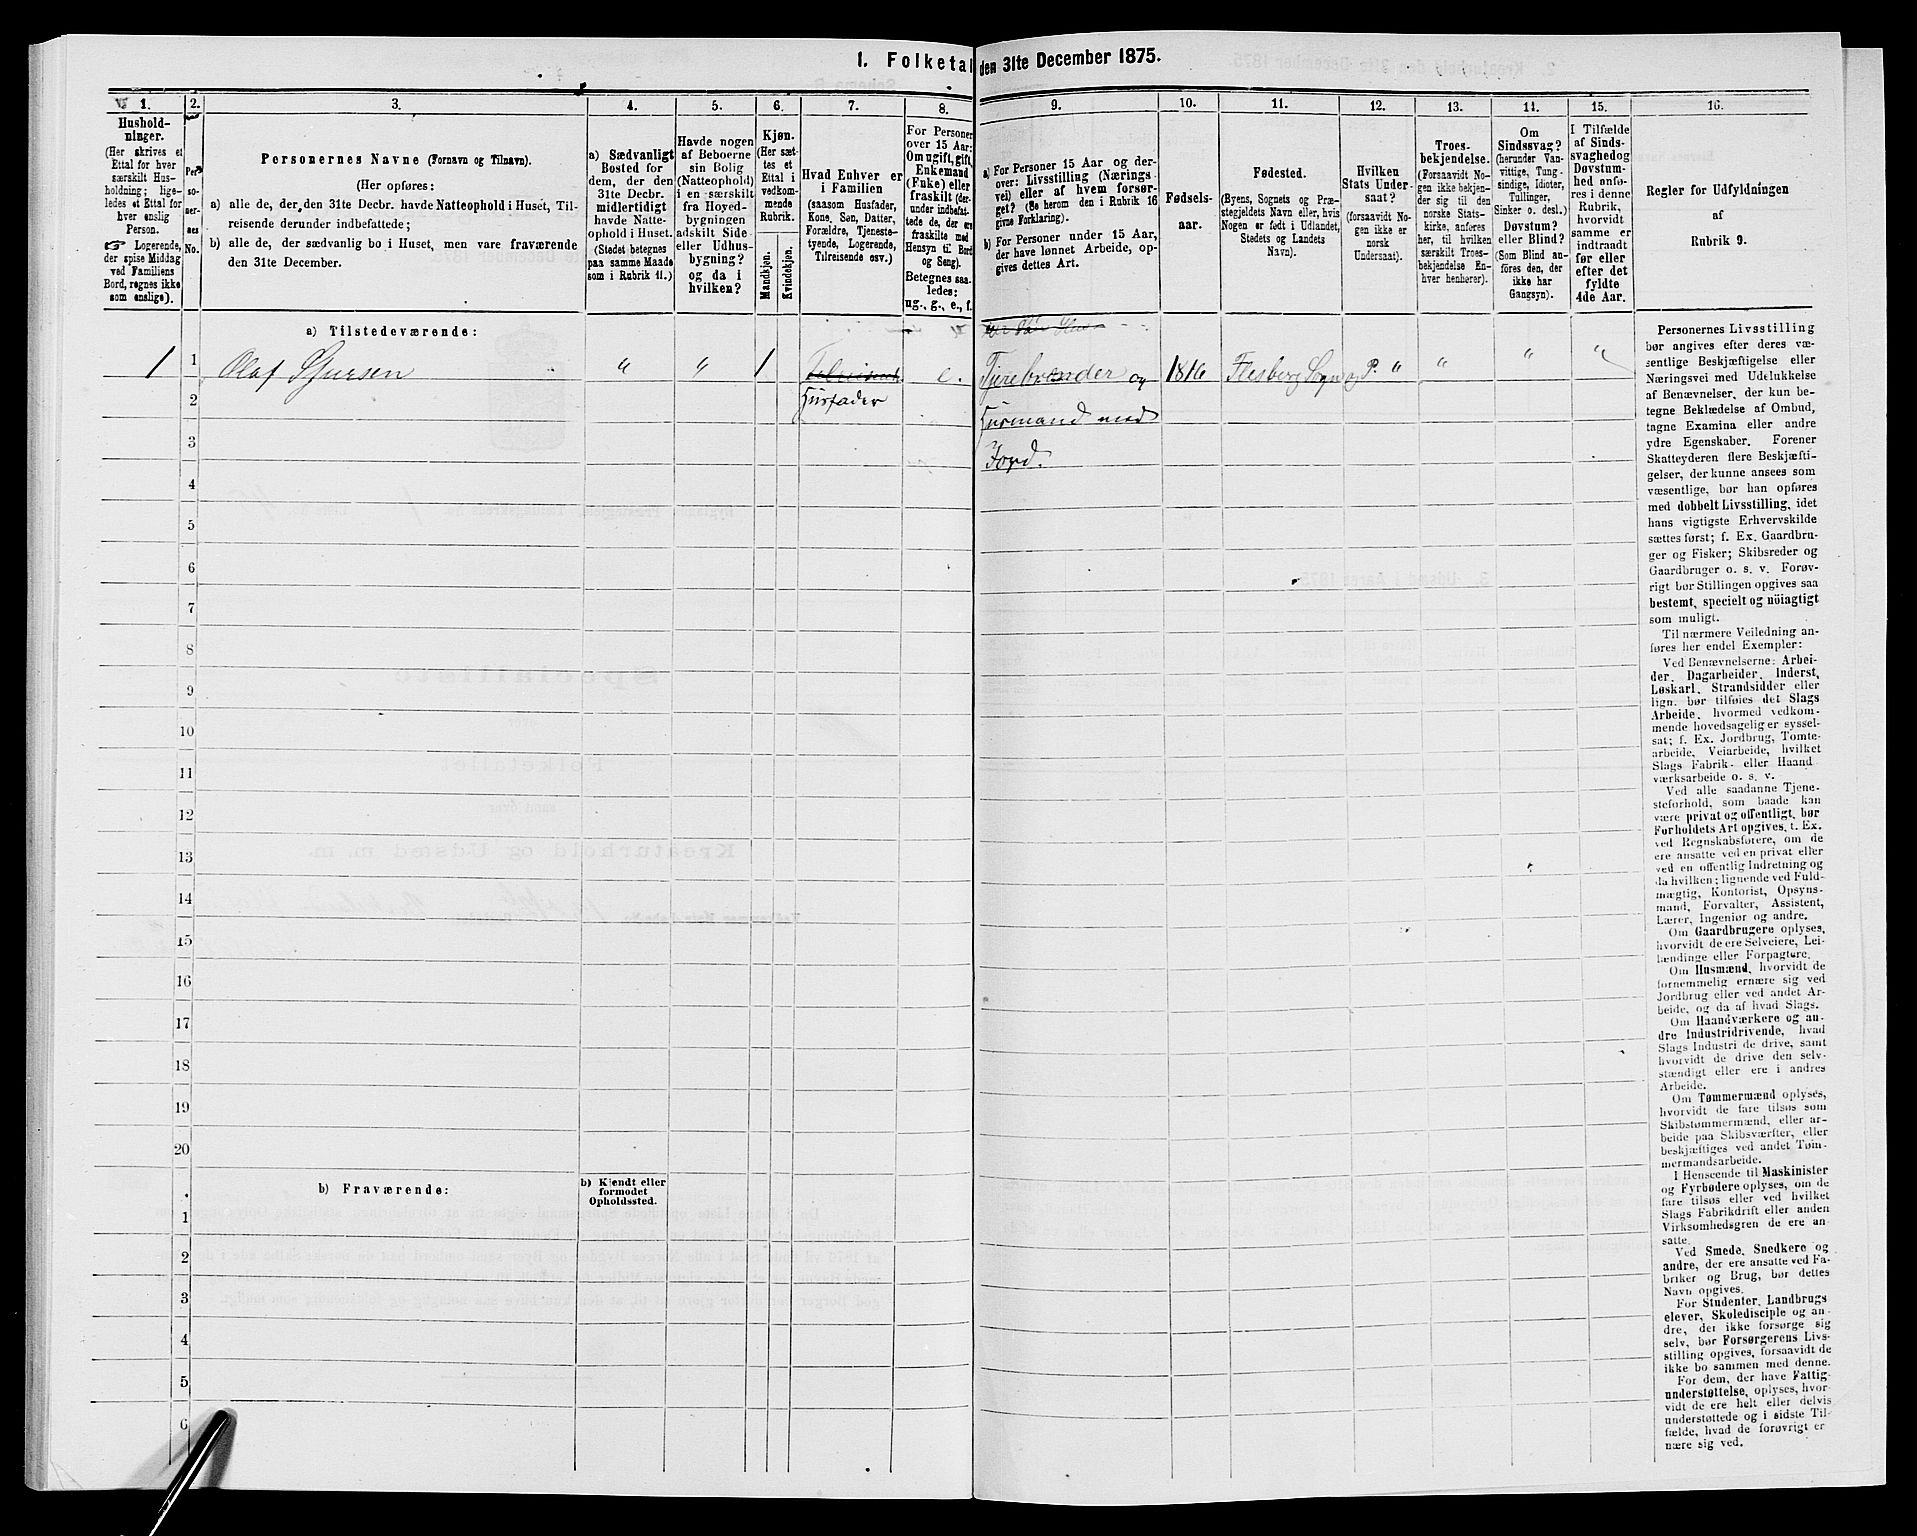 1. Folketal den 31te December 1875.
1. 2. 3. 4. 5. 6. 7. 8. 9. 10. 11. 12. 13. 14. 15. 16.
Hushold-
ninger.
(Her skrives et
Ettal for hver
særskilt Hus-
holdning; lige-
ledes et Ettal for
hver enslig
Person.
☞ Logerende,
der spise Middag
ved Familiens
Bord, regnes ikke
som enslige).
Per-
so-
ner-
nes
No.
Personernes Navne (Fornavn og Tilnavn).
(Her opføres:
a) alle de, der, den 31te Decbr. havde Natteophold i Huset, Til-
reisende derunder indbefattede;
b) alle de, der sædvanlig bo i Huset, men vare fraværende
den 31te December.
a) Sædvanligt
Bosted for
dem, der den
31te Decbr.
midlertidigt
havde Natte-
ophold i Huset.
(Stedet betegnes
paa samme Maade
som i Rubrik 11.)
Havde nogen
af Beboerne
sin Bolig
(Natteophold)
i en særskilt
fra Hoved-
bygningen
adskilt Side-
eller Udhus-
bygning?
og da i
hvilken?
Kjøn.
(Her sæt-
tes et
Ettal i
vedkom-
mende
Rubrik.
Mandkjøn.
Kvindekjøn.
Hvad Enhver er
i Familien
(saasom Husfader,
Kone, Søn, Datter,
Forældre, Tjeneste-
tyende, Logerende,
Tilreisende osv.)
For Personer
over 15 Aar:
Om ugift, gift,
Enkemand
(Enke) eller
fraskilt (der-
under indbefat-
tede de, der ere
fraskilte med
Hensyn til Bord
og Seng).
Betegnes saa-
ledes:
ug., g., e., f.
a) For Personer 15 Aar og der-
over: Livsstilling (Nærings-
vei) eller af hvem forsør-
get? (Se herom den i Rubrik 16
givne Forklaring).
b) For Personer under 15 Aar,
der have lønnet Arbeide, op-
gives dettes Art.
Fødsels-
aar.
Fødested.
(Byens, Sognets og Præ-
stegjeldets Navn eller, hvis
Nogen er født i Udlandet,
Stedets og Landets
Navn).
Hvilken
Stats Under-
saat?
(forsaavidt No-
gen ikke er
norsk
Undersaat).
Troes-
bekjendelse.
(Forsaavidt No-
gen ikke bekjen-
der sig til den
norske Stats-
kirke, anføres
her, til hvilken
særskilt Troes-
bekjendelse En-
hver henhører).
Om
Sindssvag?
(herunder Van-
vittige, Tung-
sindige, Idioter,
Tullinger,
Sinker o. desl.)
Døvstum?
eller Blind?
(Som Blind an-
føres den, der
ikke har
Gangsyn).
I Tilfælde
af Sinds-
svaghed og
Døvstum-
hed anfø-
res i denne
Rubrik,
hvorvidt
samme er
indtraadt
før eller
efter det
fyldte
4de Aar.
Regler for Udfyldningen
af
Rubrik 9.
a) Tilstedeværende:
1 1 Olaf Sjursen " " 1 Tilreisende e. Tjærebrænder og 1816 Flesberg Sogn og P. " " " "
2 Husfader Husmand med
3 Jord.
4
5
6
7
8
9
10
11
12
13
14
15
16
17
18
19
20
b) Fraværende:
b) Kjendt eller
formodet
Opholdssted.
1
2
3
4
5
6
Personernes Livsstilling
bør angives efter deres væ-
sentlige Beskjæftigelse eller
Næringsvei med Udelukkelse
af Benævnelser, der kun be-
tegne Beklædelse af Ombud,
tagne Examina eller andre
ydre Egenskaber. Forener
Skatteyderen flere Beskjæfti-
gelser, der kunne ansees som
væsentlige, bør han opføres
med dobbelt Livsstilling, idet
hans vigtigste Erhvervskilde
sættes først; f. Ex. Gaardbru-
ger og Fisker; Skibsreder og
Gaardbruger o. s. v. Forøv-
rigt bør Stillingen opgives saa
bestemt, specielt og nöiagtigt
som muligt.
Til nærmere Veiledning an-
føres her endel Exempler:
Ved Benævnelserne: Arbei-
der, Dagarbeider, Inderst,
Løskarl, Strandsidder eller
lign. bør tilføies det Slags
Arbeide, hvormed vedkom-
mende hovedsagelig er syssel-
sat; f. Ex. Jordbrug, Tomte-
arbeide, Veiarbeide, hvilket
Slags Fabrik- eller Haand-
værksarbeide o. s. v.
Ved alle saadanne Tjene-
steforhold, som baade kan
være privat og offentligt, bør
Forholdets Art opgives, t. Ex.
ved Regnskabsførere, om de
ere ansatte ved en privat eller
ved en offentlig Indretning og
da hvilken; lignende ved Fuld-
mægtig, Kontorist, Opsyns-
mand, Forvalter, Assistent,
Lærer, Ingeniør og andre.
Om Gaardbrugere oplyses,
hvorvidt de ere Selveiere, Lei-
lændinge eller Forpagtere.
Om Husmænd, hvorvidt de
fornemmelig ernære sig ved
Jordbrug eller ved andet Ar-
beide, og da af hvad Slags.
Om Haandværkere og an-
dre Industridrivende, hvad
Slags Industri de drive, samt
hvorvidt de drive den selv-
stændigt eller ere i andres
Arbeide.
Om Tømmermænd oplyses,
hvorvidt de fare tilsøs som
Skibstømmermænd, eller ar-
beide paa Skibsværfter, eller
beskjæftiges ved andet Tøm-
mermandsarbeide.
I Henseende til Maskinister
og Fyrbødere oplyses, om de
fare tilsøs eller ved hvilket
Slags Fabrikdrift eller anden
Virksomhedsgren de ere an-
satte.
Ved Smede, Snedkere og
andre, der ere ansatte ved Fa-
briker og Brug, bør dettes
Navn opgives.
For Studenter, Landbrugs-
elever, Skoledisciple og an-
dre, der ikke forsørge sig
selv, bør Forsørgerens Livs-
stilling opgives, forsaavidt de
ikke bo sammen med denne.
For dem, der have Fattig-
understøttelse, oplyses, hvor-
vidt de ere helt eller delvis
understøttede og i sidste Til-
fælde, hvad de forøvrigt er-
nære sig ved.